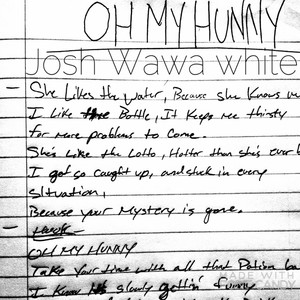 OH MY HUNNY
Josh Wawa white
She Likes the Water, Because she knows
I Like the Bottle, It Keeps me thirsty
For more problems to come.
She's Like the Lotto, Hotter than she's ever
I get so caught up, and stuck in every
situation,
Because your Mystery is gone.
Hook
OH MY HUNNY
Take your time with all that Potion
I Know slowly gettin' funny
MADE WITH